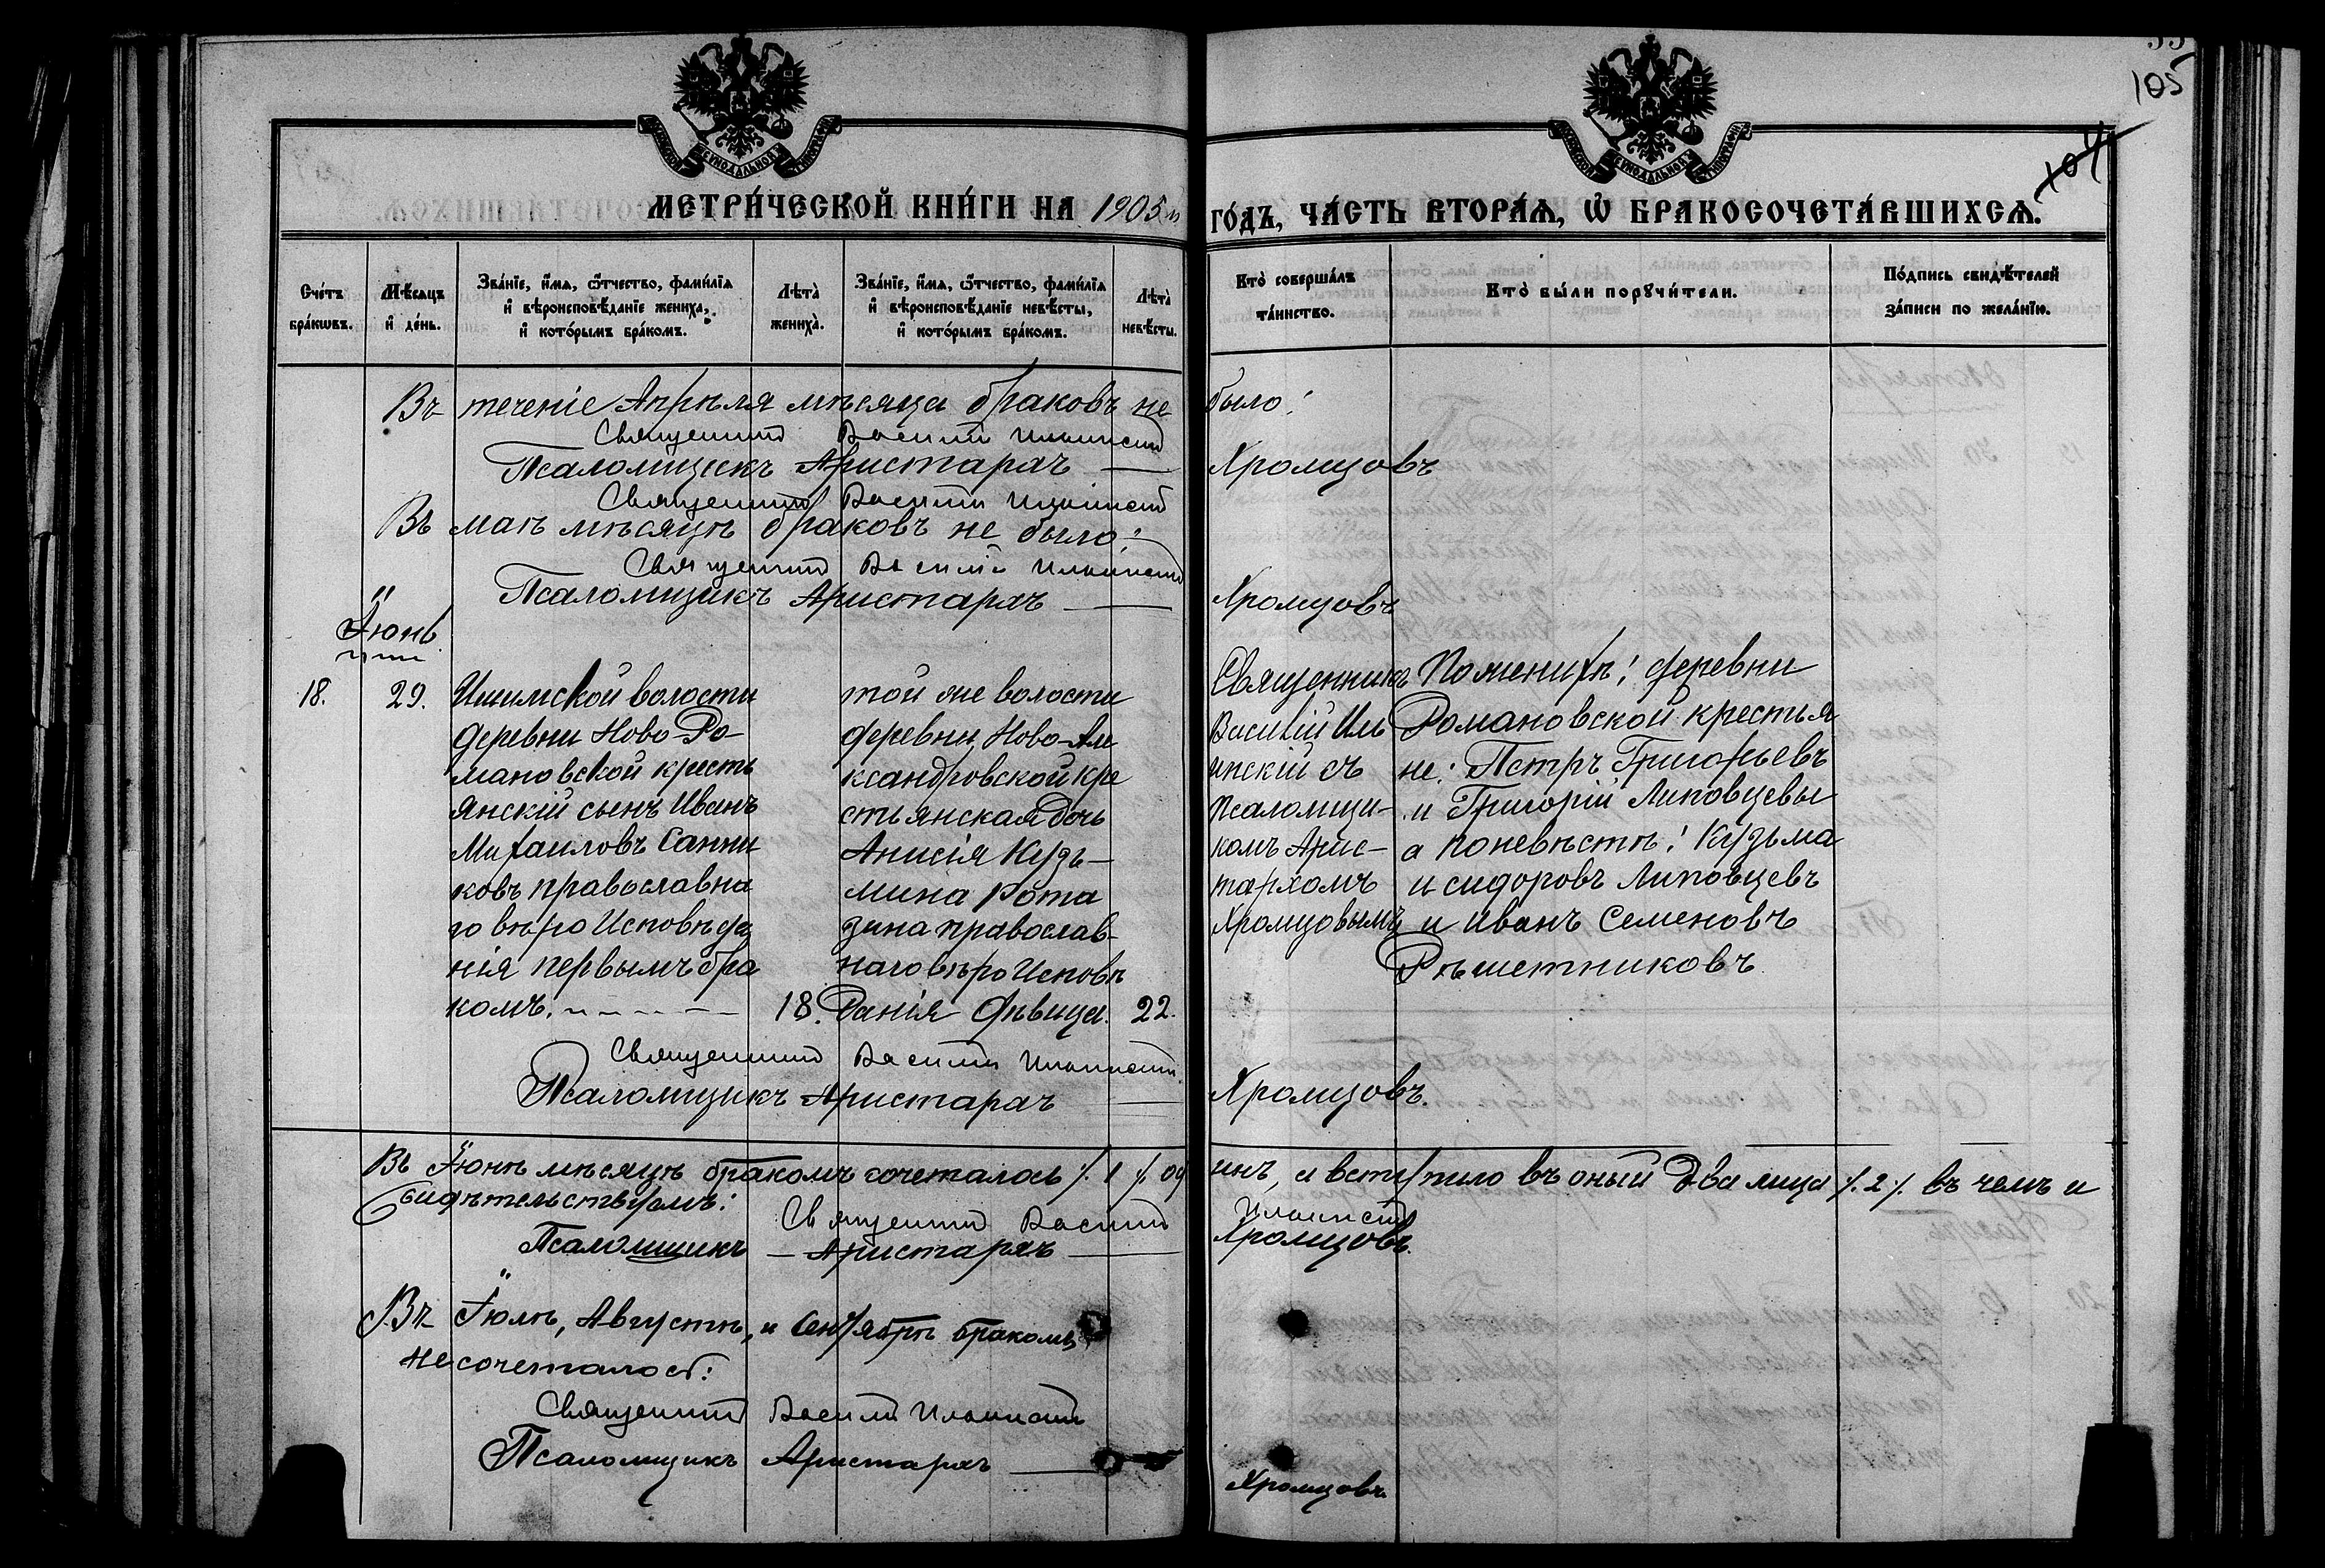 105
104
МЕТРИ́ЧЕСКОЙ КНИ́ГИ НА 1905й ГО́ДЪ, ЧА́СТЬ ВТОРА́Ѧ, Ѽ БРАКОСОЧЕТА́ВШИХСѦ.
Сче́тъ бра́кѡвъ.
Мѣ́сѧцъ и҆ де́нь.
Зва́нїе, и҆́мѧ, ѻ҆́тчество, фами́лїѧ и҆ вѣроисповѣ́данїе жениха̀, и҆ кото́рымъ бра́комъ.
Лѣта̀ жениха̀.
Зва́нїе, и҆́мѧ, ѻ҆́тчество, фами́лїѧ и҆ вѣроисповѣ́данїе невѣ́сты, и҆ кото́рымъ бра́комъ.
Лѣта̀ невѣ́сты.
Кто̀ соверша́лъ та́инство.
Кто̀ бы́ли порꙋчи́тели.
По́дпись свидѣ́телей за́писи по жела́нїю.
Въ теченіе Апрѣля мѣсяца браковъ не было:
Священникъ Василій Ильинскій
Псаломщикъ Аристархъ — Хромцовъ
Священникъ Василій Ильинскій
Въ маѣ мѣсяцѣ браковъ не было:
Священникъ Василій Ильинскій
Псаломщикъ Аристархъ — Хромцовъ
Іюнь
18. 29.
Ишимской волости
деревни Ново-Ро-
мановской кресть
янскій сынъ Иванъ
Михаиловъ Санни
ковъ православна
го вѣроисповѣда
нія первымъ бра
комъ. 18.
той же волости
деревни Ново-Але
ксандровской кре
стьянская дочь
Анисія Кузь-
мина Рота
зина православ-
наго вѣроисповѣ
данія дѣвица. 22.
Священникъ
Василій Иль
инскій съ
псаломщи-
комъ Арис-
тархомъ
Хромцовымъ
По женихѣ: деревни
Романовской крестья
не: Петръ Григорьевъ
и Григорій Липовцевы
а по невѣстѣ: Кузьма
и сидоровъ Липовцевъ
и Иванъ Семеновъ
Рѣшетниковъ.
Священникъ Василій Ильинскій
Псаломщикъ Аристархъ — Хромцовъ.
Въ Іюнѣ мѣсяцѣ бракомъ сочеталось /. 1 /. од инъ, и вступило въ оный два лица /. 2 /. въ чемъ и
Свидѣтельствуемъ:
Священникъ Василій Ильинскій
Псаломщикъ — Аристархъ — Хромцовъ.
Въ Іюлѣ, Августѣ, и Сентябрѣ бракомъ
не сочеталось:
Священникъ Василій Ильинскій
Псаломщикъ Аристархъ — Хромцовъ.